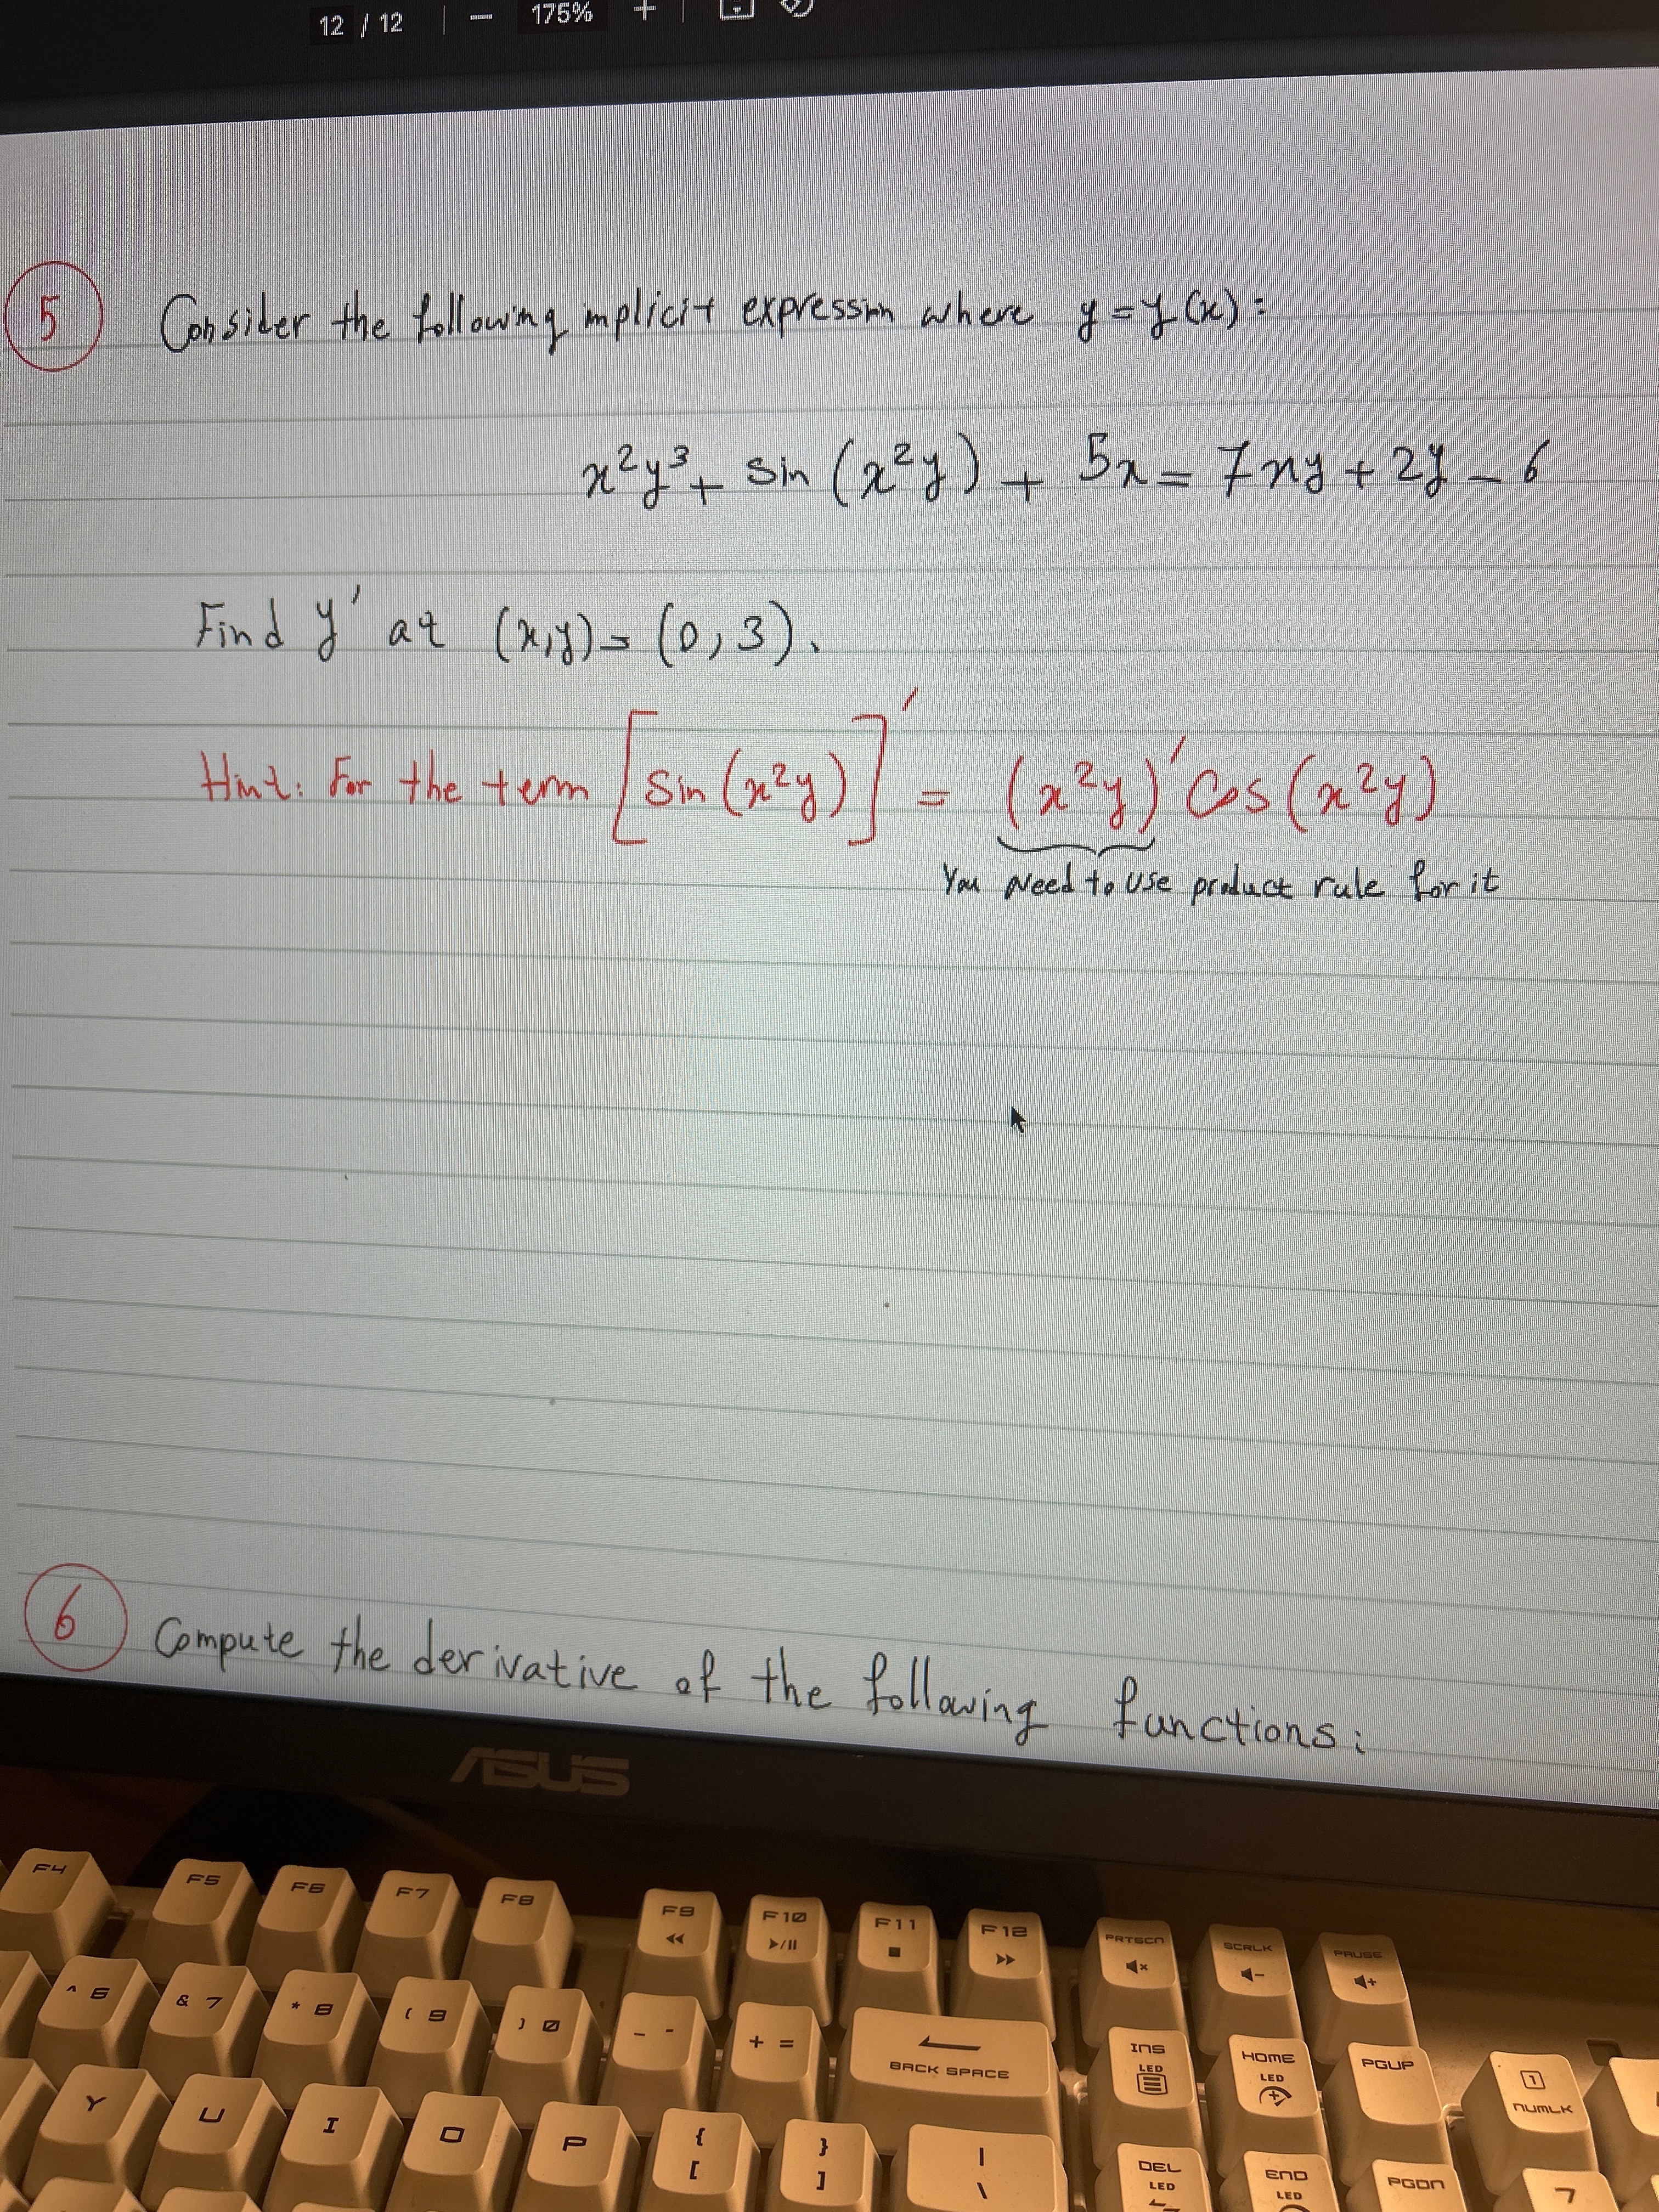 12 / 12 — 175% +
5 Consider the following implicit expression where y = y(x):
x²y³ + sin (x²y) + 5x = 7xy + 2y - 6
Find y' at (x,y) = (0, 3).
Hint: For the term [sin(x²y)]' = (x²y)' Cos(x²y)
You need to use product rule for it
6 Compute the derivative of the following functions:
ASUS
F4 F5 F6 F7 F8 F9 F10 F11 F12 PRTSCN SCRLK PAUSE
^ 6 & 7 * 8 ( 9 ) 0 _ - + = BACK SPACE INS LED HOME LED PGUP 1 NUMLK
Y U I O P { [ } ] | \ DEL LED END LED PGDN 7